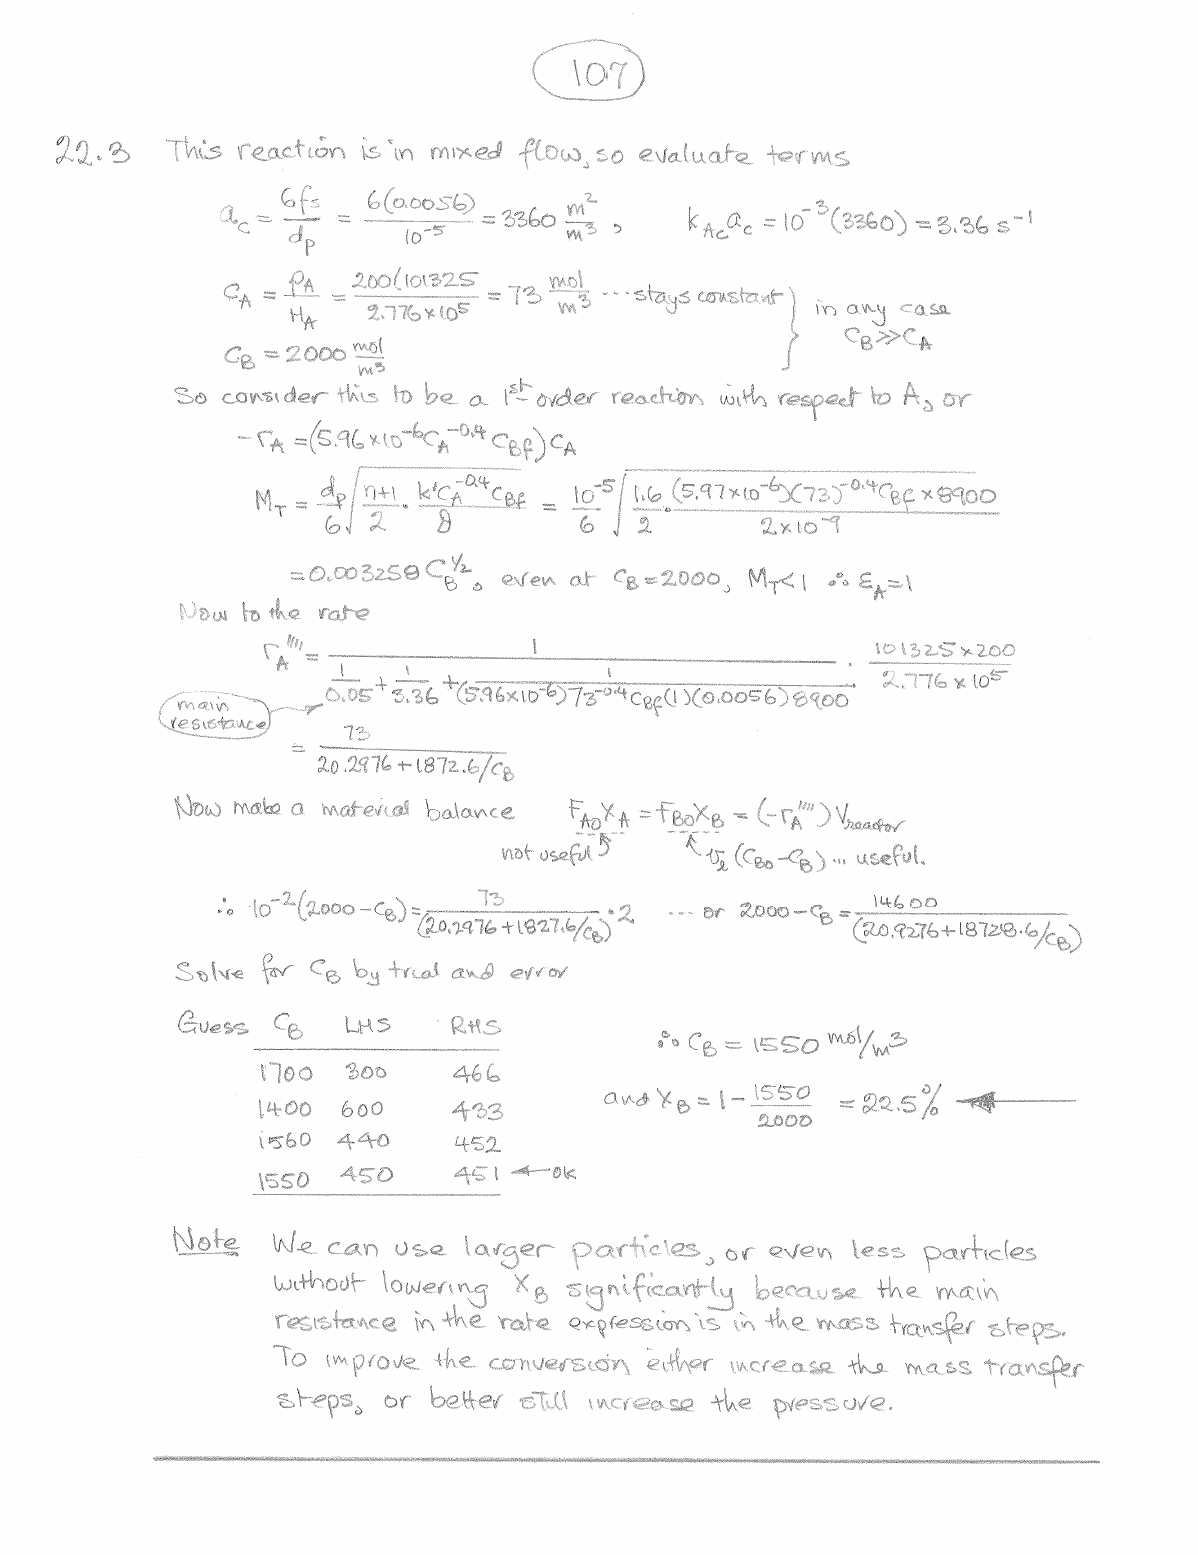 107
22.3 This reaction is in mixed flow, so evaluate terms
a_c = 6fs/dp = 6(0.0056)/10^-5 = 3360 m²/m³, k_Ac a_c = 10^-3 (3360) = 3.36 s^-1
C_A = P_A/H_A = 200(101325/2.776×10^5 = 73 mol/m³ ... stays constant } in any case
C_B = 2000 mol/m³ C_B >> C_A
So consider this to be a 1st order reaction with respect to A, or
-r_A = (5.96×10^-6 C_A^-0.4 C_Bf) C_A
M_T = dp/6 √(n+1/2 · k' C_A^-0.4 C_Bf/D) = 10^-5/6 √(1.6/2 · (5.97×10^-6)(73)^-0.4 C_Bf × 8900/2×10^-9)
= 0.003258 C_B^1/2, even at C_B = 2000, M_T < 1 ∴ ε_A = 1
Now to the rate
r_A'''' = 1/(1/0.05 + 1/3.36 + 1/(5.96×10^-6) 73^-0.4 C_Bf (1)(0.0056) 8900) · 101325×200/2.776×10^5
main resistance
= 73/(20.2976 + 1872.6/C_B)
Now make a material balance F_A0 X_A = F_B0 X_B = (-r_A'''') V_reactor
not useful v_l (C_B0 - C_B) ... useful.
∴ 10^-2 (2000 - C_B) = 73/(20.2976 + 1827.6/C_B) · 2 ... or 2000 - C_B = 14600/(20.9276 + 18728.6/C_B)
Solve for C_B by trial and error
Guess C_B LHS RHS
1700 300 466
1400 600 433
1560 440 452
1550 450 451 ← OK
∴ C_B = 1550 mol/m³
and X_B = 1 - 1550/2000 = 22.5% ←
Note We can use larger particles, or even less particles
without lowering X_B significantly because the main
resistance in the rate expression is in the mass transfer steps.
To improve the conversion either increase the mass transfer
steps, or better still increase the pressure.